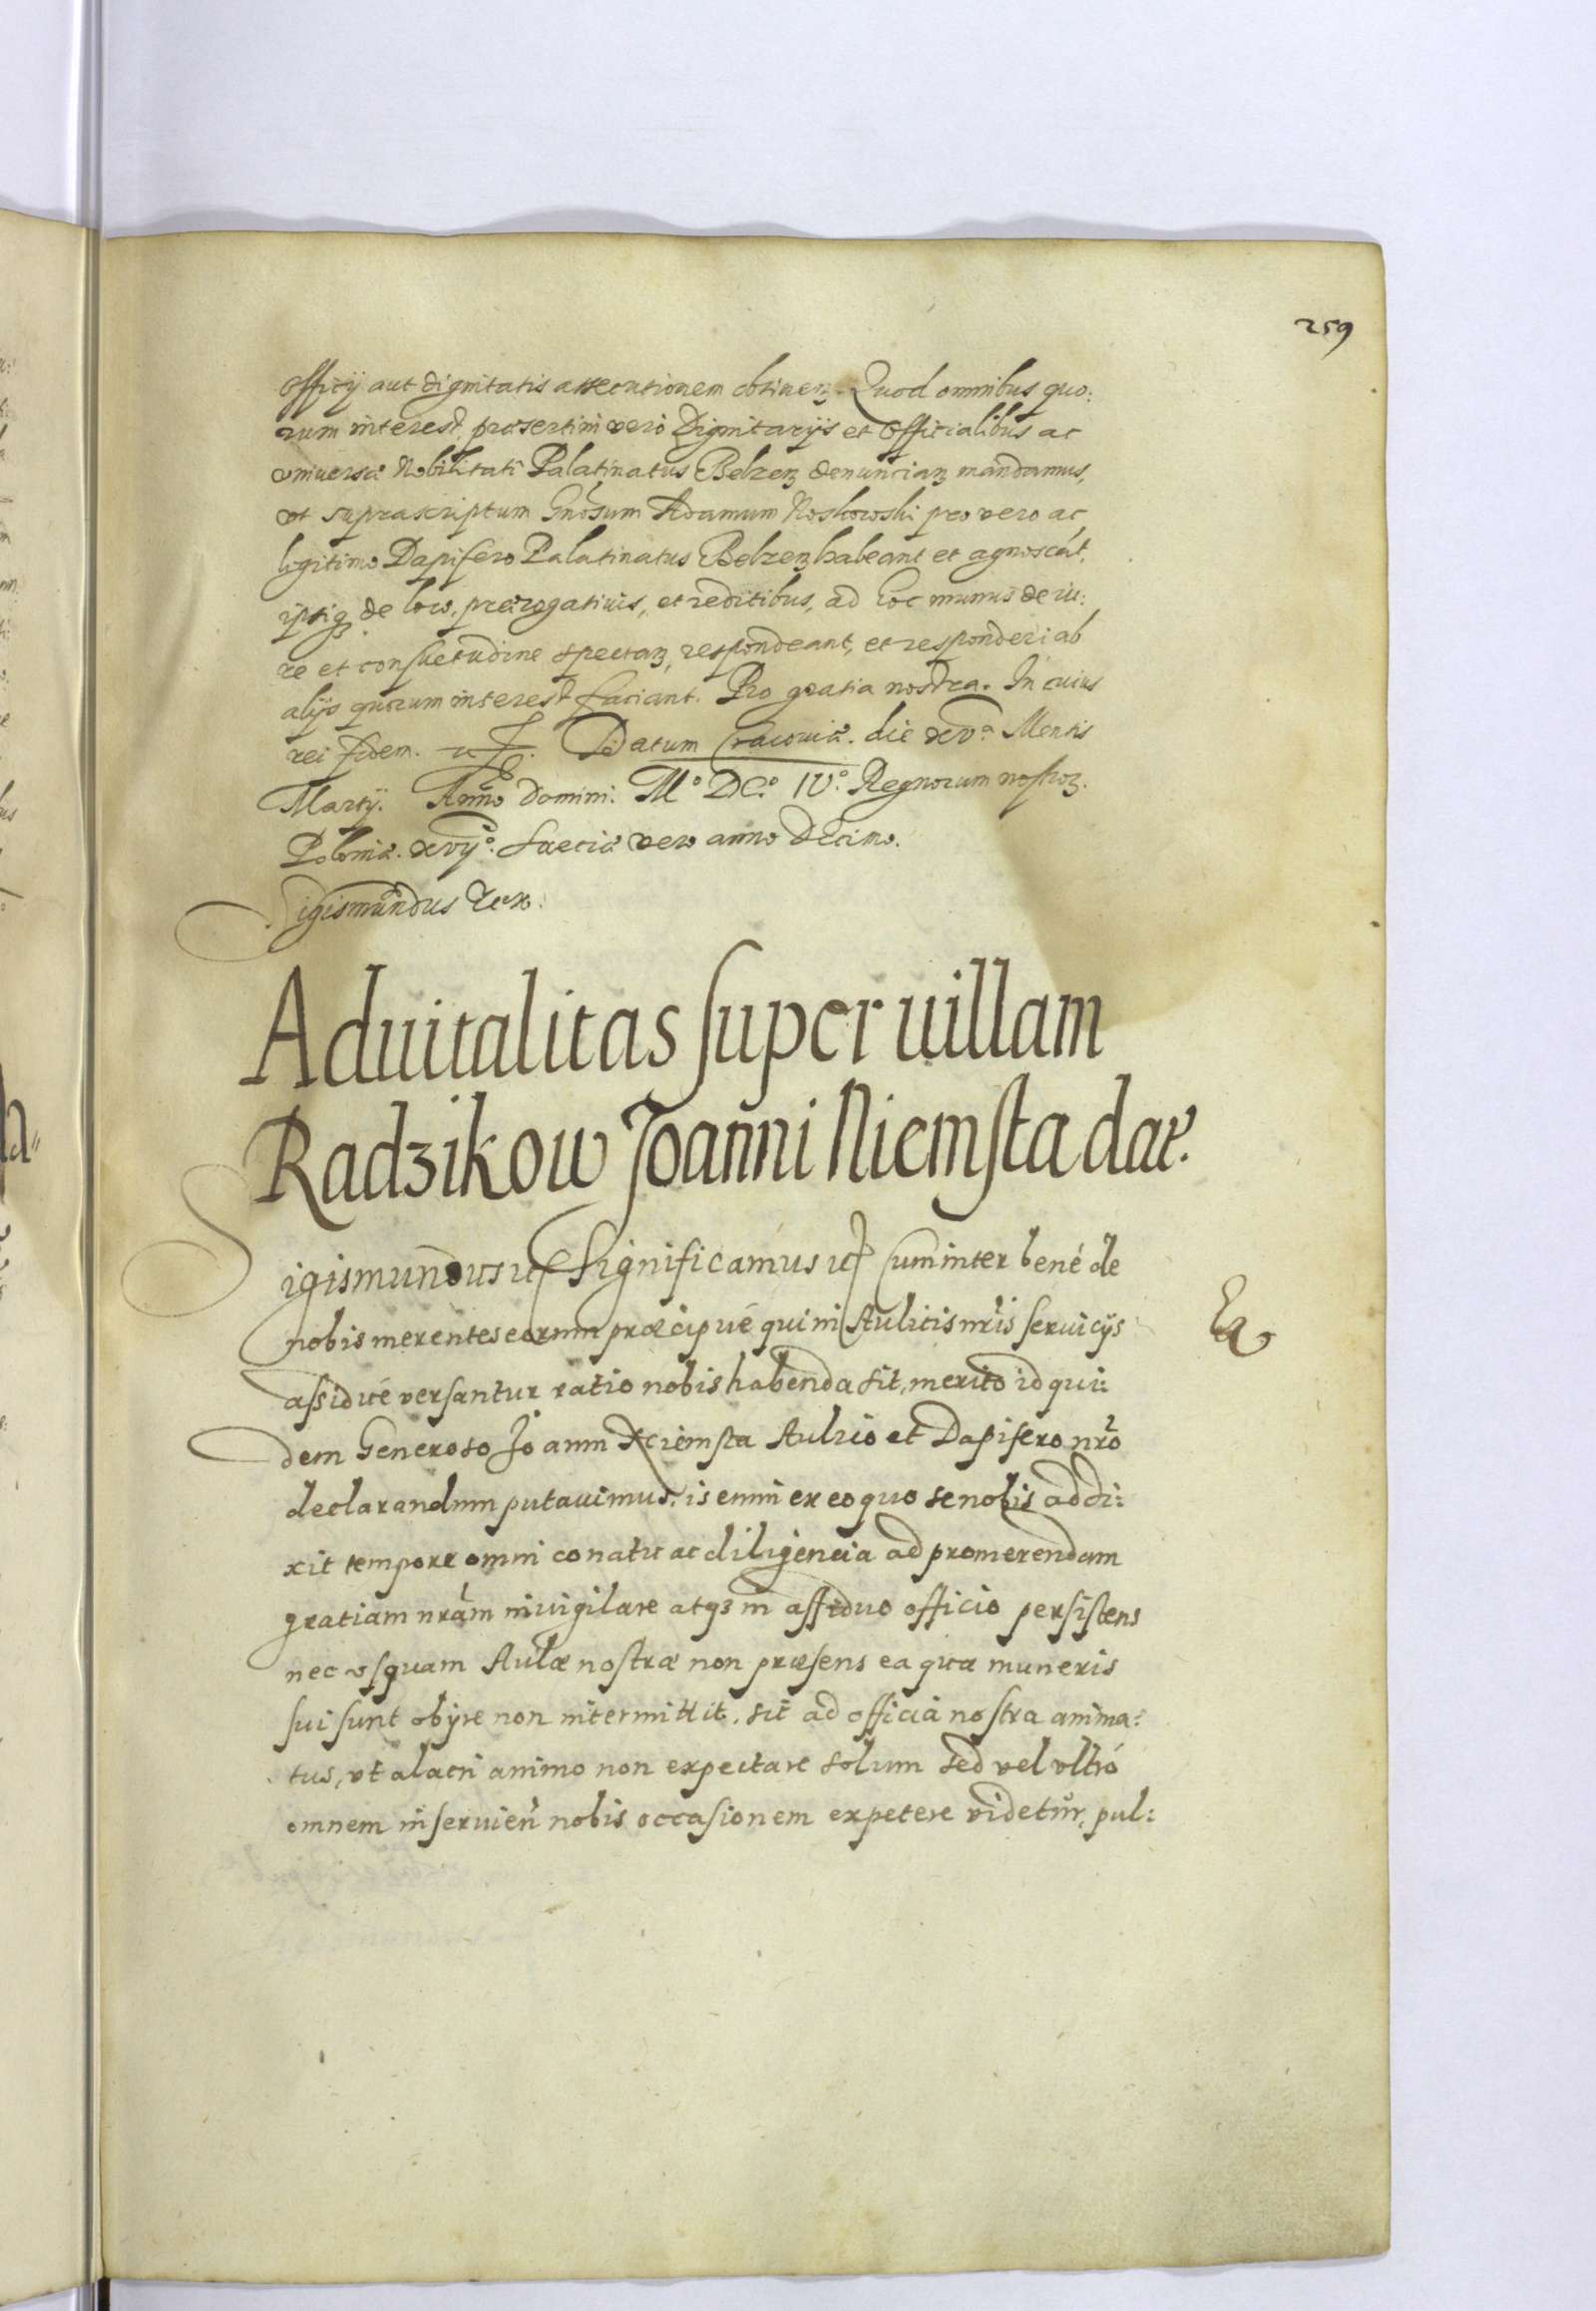 259
Officij aut dignitatis assecutionem obtinenz. Quod omnibus quo:
rum interest, præsertim vero Dignitarijs et Officialibus ac
vniuersæ Nobilitati Palatinatus Belzenz denuncianz mandamus,
vt suprascriptum Gnosum Adamum Noskowski pro vero ac
legitimo Dapifero Palatinatus Belzenz habeant et agnoscāt,
ipsiqz de loco, prærogatiuis, et reditibus, ad hoc munus de iu:
re et consuetudine spectanz, respondeant, et responderi ab
alijs quorum interest faciant. Pro gratia nostra. In cuius
rei fidem. Datum Cracouiæ. die xvª Mensis
Martij. Anno Domini. Mº DCº. IVº. Regnorum nostroz.
Poloniæ. xvijº. Sueciæ vero anno Decimo.
Sigismundus Rex.
Aduitalitas super uillam
Radzikow Joanni Niemsta dat.
Sigismundus etc Significamus etc Cum inter bené de
nobis merentes eorum præcipué qui in Aulicis nris seruicijs
assidué versantur ratio nobis habenda sit, merito id qui:
dem Generoso Joanni Niemsta Aulico et Dapifero nro
declarandum putauimus. is enim ex eo quo se nobis addi:
xit tempore omni conatu ac diligencia ad promerendam
gratiam nram inuigilare atqz in assiduo officio persistens
nec vsquam Aulæ nostræ non præsens ea quæ muneris
sui sunt obijre non intermittit. sit ad officia nostra anima:
tus, vt alacri animo non expectare solum sed vel vltró
omnem inseruien nobis occasionem expetere videtur, pul: